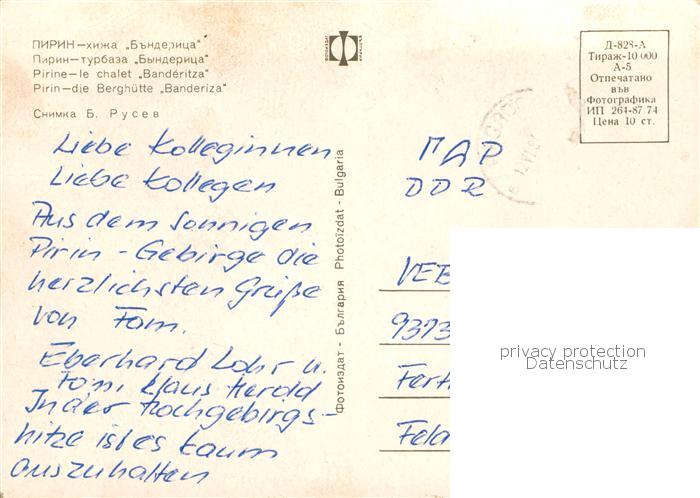 ПИРИН—хижа „Бъндерица“
Пирин—турбаза „Бындерица“
Pirine—le chalet „Bandéritza“
Pirin—die Berghütte „Banderiza“
Снимка Б. Русев
Д-828-А
Тираж-10 000
А-5
Отпечатано
във
Фотографика
ИП 264-87.74
Цена 10 ст.
Liebe Kolleginnen
Liebe Kollegen
Aus dem sonnigen
Pirin - Gebirge die
herzlichsten Grüße
von Fam.
Eberhard Lohr u.
Fam. Klaus Herold
In der Hochgebirgs-
hitze ist es kaum
auszuhalten
Фотоиздат - България Photoïzdat - Bulgaria
ГДР
DDR
VEB
9373
Fert
Feld
privacy protection
Datenschutz